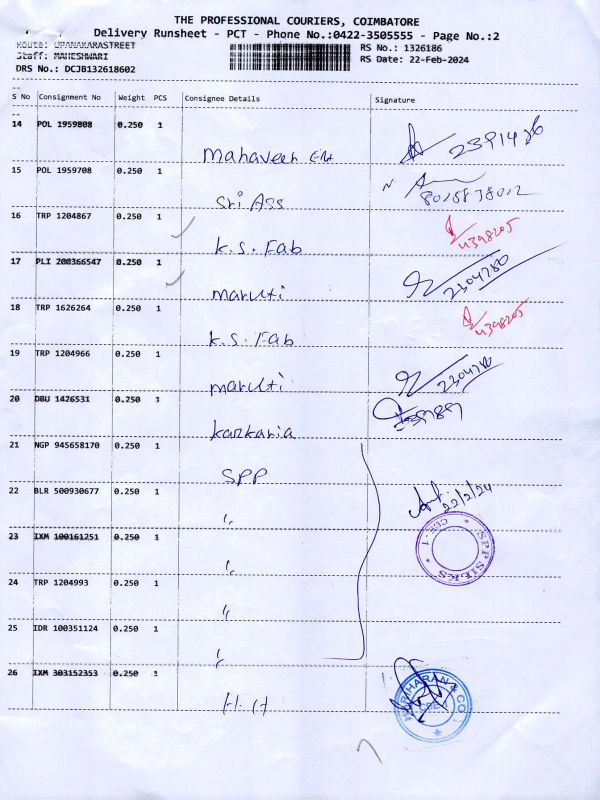 THE PROFESSIONAL COURIERS, COIMBATORE
Delivery Runsheet - PCT - Phone No.:0422-3505555 - Page No.:2
Route: UPANAKARASTREET
RS No.: 1326186
Staff: MAHESHWARI
RS Date: 22-Feb-2024
DRS No.: DCJB132618602
S No Consignment No Weight PCS Consignee Details Signature
14 POL 1959808 0.250 1
Mahaveer Ent 2391426
15 POL 1959708 0.250 1
Sri Ass
16 TRP 1204867 0.250 1
K.S. Fab 4398205
17 PLI 200366547 0.250 1
maruti 2304280
18 TRP 1626264 0.250 1
K.S. Fab 4398205
19 TRP 1204966 0.250 1
maruti 2304280
20 DBU 1426531 0.250 1
karkaria
21 NGP 945658170 0.250 1
SPP
22 BLR 500930677 0.250 1
〃 22/2/24
23 IXM 100161251 0.250 1
〃 SPP SILKS CBE-1
24 TRP 1204993 0.250 1
〃
25 IDR 100351124 0.250 1
〃
26 IXM 303152353 0.250 1
H.H HARIHARAN & CO CBE-1